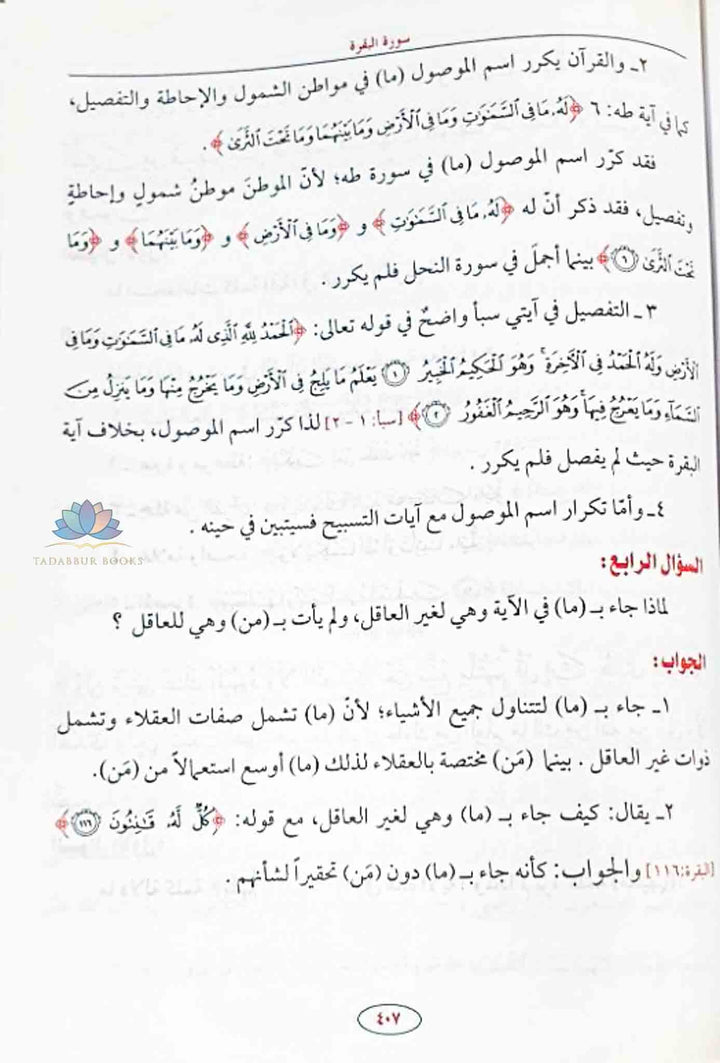 سورة البقرة
٢ـ والقرآن يكرر اسم الموصول (ما) في مواطن الشمول والإحاطة والتفصيل،
كما في آية طه: ٦ ﴿لَهُۥ مَا فِي ٱلسَّمَٰوَٰتِ وَمَا فِي ٱلْأَرْضِ وَمَا بَيْنَهُمَا وَمَا تَحْتَ ٱلثَّرَىٰ﴾.
فقد كرّر اسم الموصول (ما) في سورة طه؛ لأنّ الموطنَ موطنُ شمولٍ وإحاطةٍ
وتفصيل، فقد ذكر أنّ له ﴿لَهُۥ مَا فِي ٱلسَّمَٰوَٰتِ﴾ و ﴿وَمَا فِي ٱلْأَرْضِ﴾ و ﴿وَمَا بَيْنَهُمَا﴾ و ﴿وَمَا
تَحْتَ ٱلثَّرَىٰ ٦﴾ بينما أجملَ في سورة النحل فلم يكرر.
٣ـ التفصيل في آيتي سبأ واضحٌ في قوله تعالى: ﴿ٱلْحَمْدُ لِلَّهِ ٱلَّذِي لَهُۥ مَا فِي ٱلسَّمَٰوَٰتِ وَمَا فِي
ٱلْأَرْضِ وَلَهُ ٱلْحَمْدُ فِي ٱلْأَخِرَةِ ۚ وَهُوَ ٱلْحَكِيمُ ٱلْخَبِيرُ ١ يَعْلَمُ مَا يَلِجُ فِي ٱلْأَرْضِ وَمَا يَخْرُجُ مِنْهَا وَمَا يَنزِلُ مِنَ
ٱلسَّمَآءِ وَمَا يَعْرُجُ فِيهَا ۚ وَهُوَ ٱلرَّحِيمُ ٱلْغَفُورُ ٢﴾ [سبأ: ١ - ٢] لذا كرّر اسم الموصول، بخلاف آية
البقرة حيث لم يفصل فلم يكرر.
٤ـ وأمّا تكرار اسم الموصول مع آيات التسبيح فسيتبين في حينه.
TADABBUR BOOKS
السؤال الرابع:
لماذا جاء بـ (ما) في الآية وهي لغير العاقل، ولم يأت بـ (من) وهي للعاقل ؟
الجواب:
١ـ جاء بـ (ما) لتتناول جميع الأشياء؛ لأنّ (ما) تشمل صفات العقلاء وتشمل
ذوات غير العاقل. بينما (مَن) مختصة بالعقلاء لذلك (ما) أوسع استعمالاً من (مَن).
٢ـ يقال: كيف جاء بـ (ما) وهي لغير العاقل، مع قوله: ﴿كُلٌّ لَّهُۥ قَٰنِتُونَ ١١٦﴾
[البقرة: ١١٦] والجواب: كأنه جاء بـ (ما) دون (مَن) تحقيراً لشأنهم.
٤٠٧